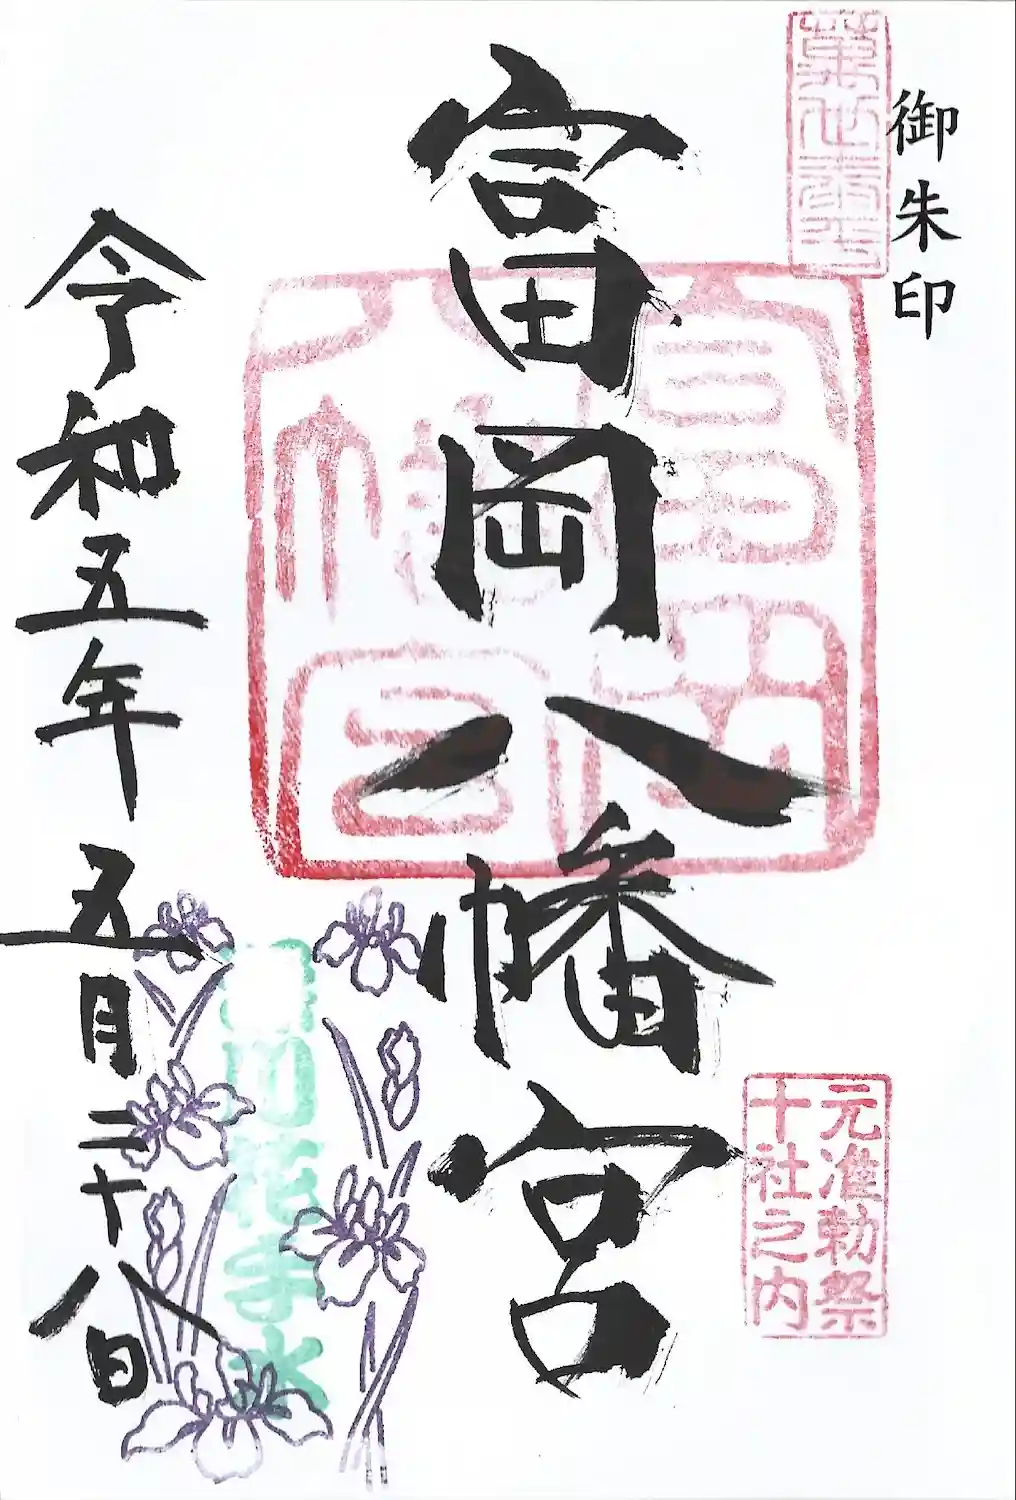 御朱印
富岡八幡宮
富岡
八幡宮
元准勅祭
十社之内
花手水
令和五年五月二十八日